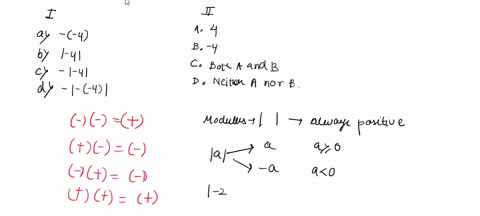 I
a) -(-4)
b) |-4|
c) -|-4|
d) -|-(-4)|
II
A. 4
B. -4
C. Both A and B
D. Neither A nor B.
(-)(-) = (+)
(+)(-) = (-)
(-)(+) = (-)
(+)(+) = (+)
Modulus → | | → always positive
|a| → a a≥0
→ -a a<0
|-2